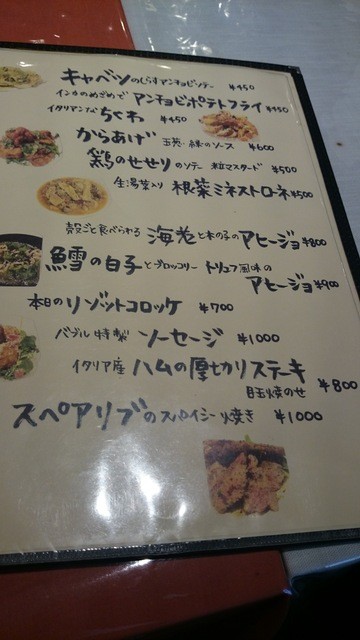 キャベツのしらすアンチョビソテー ¥450
インカのめざめで アンチョビポテトフライ ¥450
イタリアンなちくわ ¥450
からあげ 玉葱・緑のソース ¥600
鶏のせせりのソテー 粒マスタード ¥500
生湯葉入り 根菜ミネストローネ ¥500
殻ごと食べられる 海老と木の子のアヒージョ ¥800
鱈の白子とブロッコリー トリュフ風味の
アヒージョ ¥900
本日のリゾットコロッケ ¥700
バブル特製 ソーセージ ¥1000
イタリア産 ハムの厚切りステーキ
目玉焼のせ ¥800
スペアリブのスパイシー焼き ¥1000